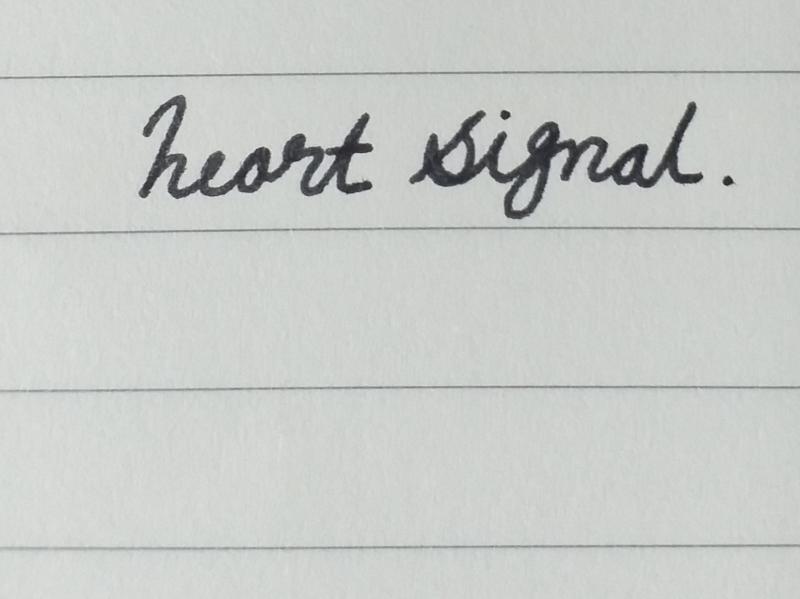 heart signal.